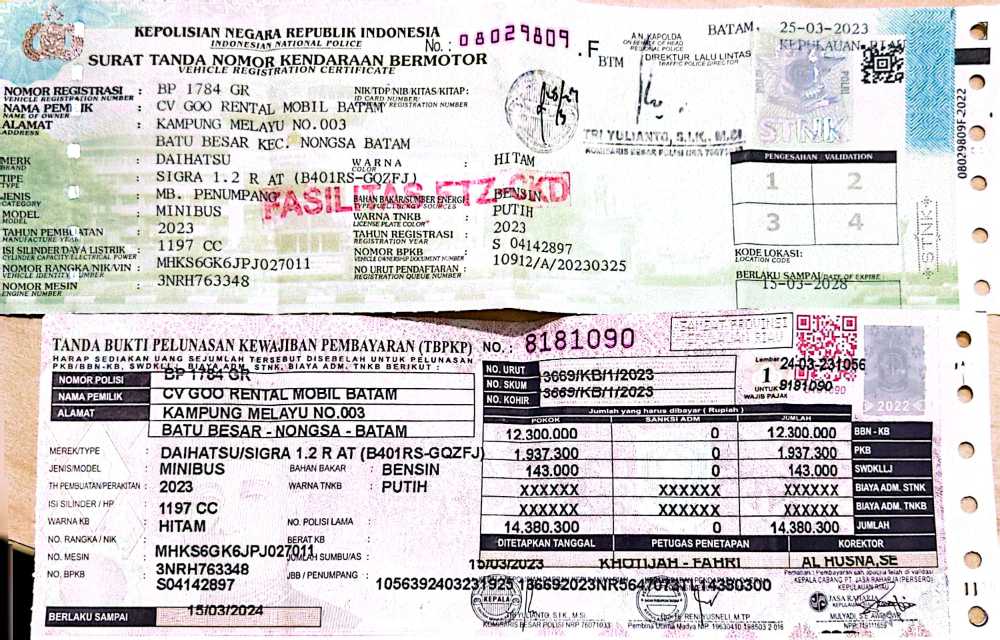 KEPOLISIAN NEGARA REPUBLIK INDONESIA
INDONESIAN NATIONAL POLICE
No. : 08029809 .F
SURAT TANDA NOMOR KENDARAAN BERMOTOR
VEHICLE REGISTRATION CERTIFICATE
BTM
A.N. KAPOLDA
ON BEHALF OF HEAD
REGIONAL POLICE
DIREKTUR LALU LINTAS
TRAFFIC POLICE DIRECTOR
BATAM, 25-03-2023
KEPULAUAN RIAU
NOMOR REGISTRASI : BP 1784 GR
VEHICLE REGISTRATION NUMBER
NIK/TDP/NIB/KITAS/KITAP :
ID CARD NUMBER/
REGISTRATION NUMBER
NAMA PEMILIK : CV GOO RENTAL MOBIL BATAM
NAME OF OWNER
ALAMAT : KAMPUNG MELAYU NO.003
ADDRESS
BATU BESAR KEC. NONGSA BATAM
MERK : DAIHATSU
BRAND
WARNA : HITAM
COLOR
TIPE : SIGRA 1.2 R AT (B401RS-GQZFJ)
TYPE
FASILITAS FTZ CKD
JENIS : MB. PENUMPANG
CATEGORY
BAHAN BAKAR/SUMBER ENERGI : BENSIN
TYPE FUEL/ENERGY SOURCES
MODEL : MINIBUS
MODEL
WARNA TNKB : PUTIH
LICENSE PLATE COLOR
TAHUN PEMBUATAN : 2023
MANUFACTURE YEAR
TAHUN REGISTRASI : 2023
REGISTRATION YEAR
ISI SILINDER/DAYA LISTRIK : 1197 CC
CYLINDER CAPACITY/ELECTRICAL POWER
NOMOR BPKB : S 04142897
VEHICLE OWNERSHIP DOCUMENT NUMBER
NOMOR RANGKA/NIK/VIN : MHKS6GK6JPJ027011
VEHICLE IDENTITY NUMBER
NO URUT PENDAFTARAN : 10912/A/20230325
REGISTRATION QUEUE NUMBER
NOMOR MESIN : 3NRH763348
ENGINE NUMBER
TRI YULIANTO, S.I.K., M.Si
STNK
PENGESAHAN / VALIDATION
1 2
3 4
KODE LOKASI:
LOCATION CODE
BERLAKU SAMPAI/DATE OF EXPIRE
15-03-2028
08029809F-2022
STNK
TANDA BUKTI PELUNASAN KEWAJIBAN PEMBAYARAN (TBPKP) NO. : 8181090
HARAP SEDIAKAN UANG SEJUMLAH TERSEBUT DISEBELAH UNTUK PELUNASAN
PKB/BBN-KB, SWDKLLJ, BIAYA ADM. STNK, BIAYA ADM. TNKB BERIKUT :
NOMOR POLISI BP 1784 GR
NAMA PEMILIK CV GOO RENTAL MOBIL BATAM
ALAMAT KAMPUNG MELAYU NO.003
BATU BESAR - NONGSA - BATAM
MEREK/TYPE : DAIHATSU/SIGRA 1.2 R AT (B401RS-GQZFJ)
JENIS/MODEL : MINIBUS
BAHAN BAKAR : BENSIN
TH PEMBUATAN/PERAKITAN : 2023
WARNA TNKB : PUTIH
ISI SILINDER / HP : 1197 CC
WARNA KB : HITAM
NO. POLISI LAMA :
NO. RANGKA / NIK : MHKS6GK6JPJ027011
BERAT KB
NO. MESIN : 3NRH763348
JUMLAH SUMBU/AS :
NO. BPKB : S04142897
JBB / PENUMPANG :
BERLAKU SAMPAI 15/03/2024
NO. URUT
NO. SKUM 3669/KB/1/2023
NO. KOHIR 3669/KB/1/2023
SAMSAT PROVINSI
Lembar
1
UNTUK
WAJIB PAJAK
24-03-231056
8181090
2022
Jumlah yang harus dibayar ( Rupiah )
POKOK SANKSI ADM JUMLAH
12.300.000 0 12.300.000 BBN - KB
1.937.300 0 1.937.300 PKB
143.000 0 143.000 SWDKLLJ
XXXXXX XXXXXX XXXXXX BIAYA ADM. STNK
XXXXXX XXXXXX XXXXXX BIAYA ADM. TNKB
14.380.300 0 14.380.300 JUMLAH
DITETAPKAN TANGGAL PETUGAS PENETAPAN KOREKTOR
15/03/2023 KHOTIJAH - FAHRI AL HUSNA,SE
KEPALA CABANG PT. JASA RAHARJA (PERSERO)
KEPULAUAN RIAU
JASA RAHARJA
KEPALA
KOMISARIS BESAR POLISI NRP 76071033
Pembina Utama Madya NIP. 19630410 198503 2 016